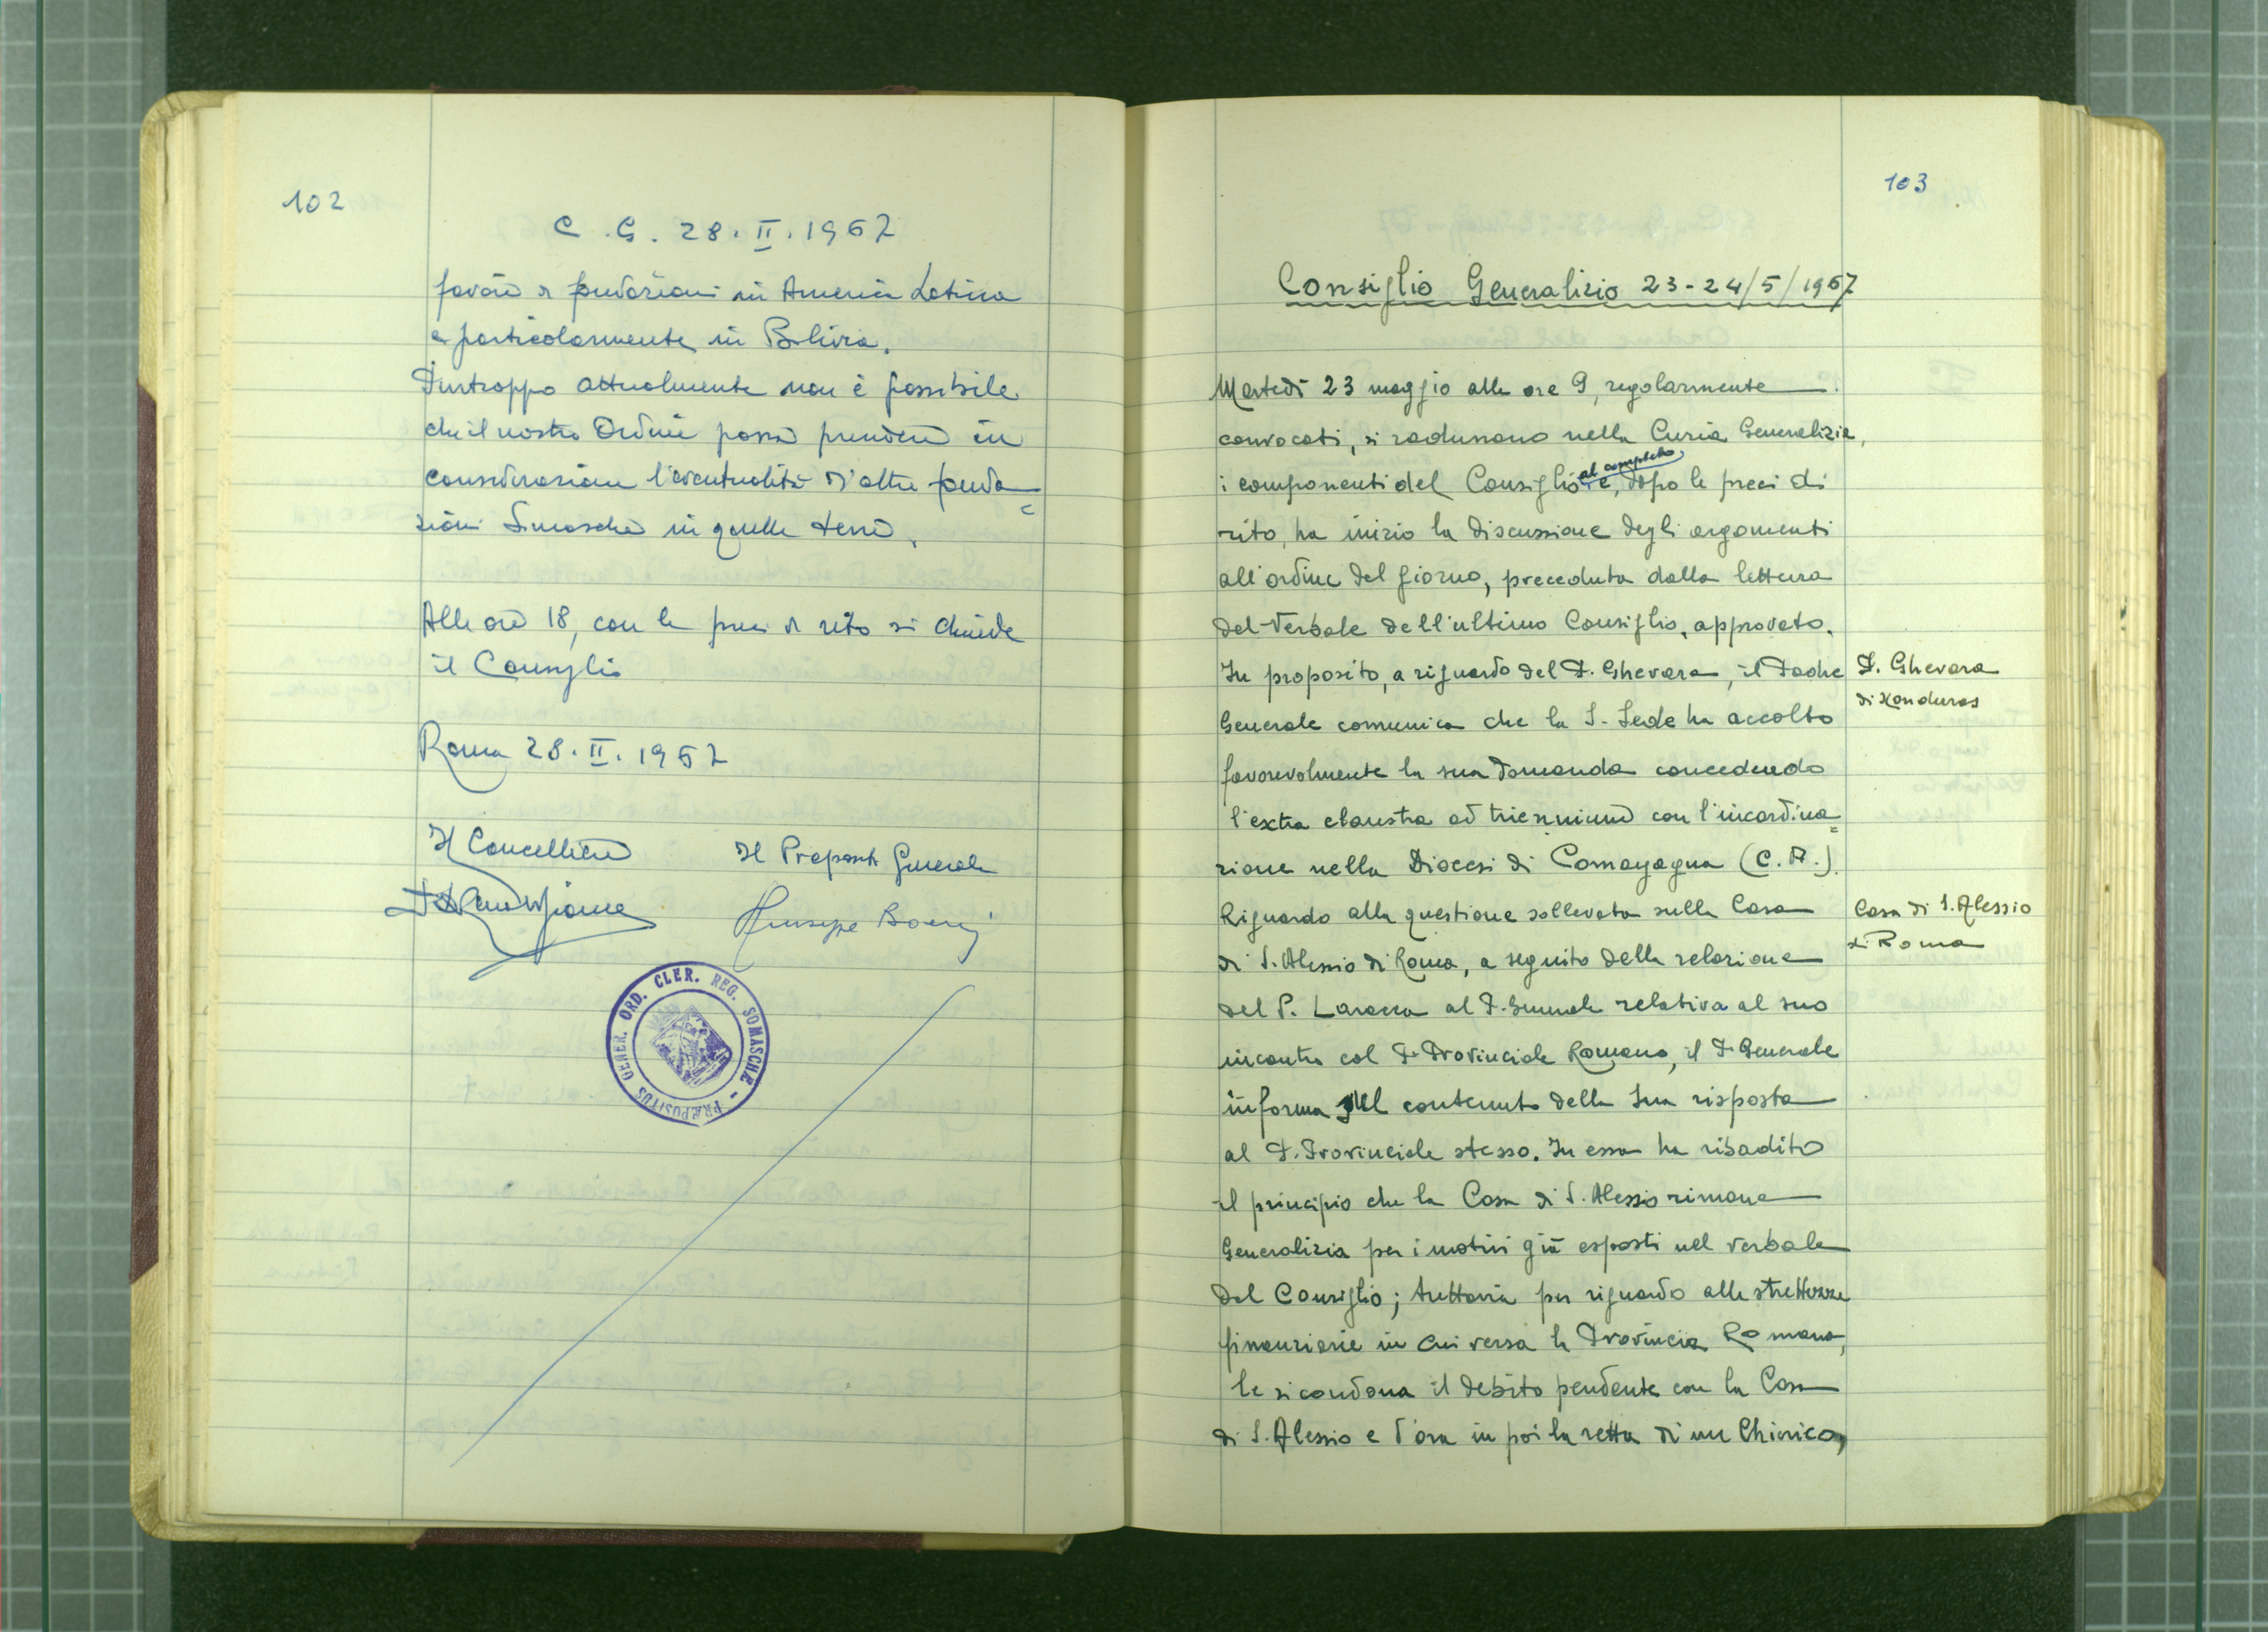 102
C. G. 28. II. 1967
favore di fondazioni in America Latina
e particolarmente in Bolivia.
Purtroppo attualmente non è possibile
che il nostro Ordine possa prendere in
considerazione l'eventualità d'altre fonda=
zioni Somasche in quelle terre.
Alle ore 18, con le preci di rito si chiude
il Consiglio
Roma 28. II. 1967
Il Cancelliere Il Preposito Generale
Giuseppe Boeris
PRÆPOSITUS GENER. ORD. CLER. REG. SOMASCHÆ
103
Consiglio Generalizio 23-24/5/1967
Martedì 23 maggio alle ore 9, regolarmente
convocati, si radunano nella Curia Generalizia,
i componenti del Consiglio al completo e, dopo le preci di
rito, ha inizio la discussione degli argomenti
all'ordine del giorno, preceduta dalla lettura
del Verbale dell'ultimo Consiglio, approvato.
In proposito, a riguardo del P. Ghevara, il Padre
Generale comunica che la S. Sede ha accolto
favorevolmente la sua domanda concedendo
l'extra claustra ad triennium con l'incardina=
zione nella Diocesi di Comayagua (C. A.).
Riguardo alla questione sollevata sulla Casa
di S. Alessio di Roma, a seguito della relazione
del P. Larocca al P. Generale relativa al suo
incontro col P. Provinciale Romano, il P. Generale
informa sul contenuto della sua risposta
al P. Provinciale stesso. In essa ha ribadito
il principio che la Casa di S. Alessio rimane
Generalizia per i motivi già esposti nel verbale
del Consiglio; tuttavia per riguardo alle strettezze
finanziarie in cui versa la Provincia Romana,
le si condona il debito pendente con la Casa
di S. Alessio e d'ora in poi la retta di un Chierico,
P. Ghevara
di Honduras
Casa di S. Alessio
di Roma